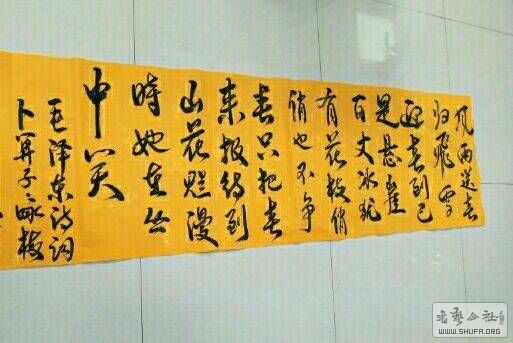 风雨送春
归飞雪
迎春到已
是悬崖
百丈冰犹
有花枝俏
俏也不争
春只把春
来报待到
山花烂漫
时她在丛
中笑
毛泽东诗词
卜算子咏梅
书艺公社
WWW.SHUFA.ORG